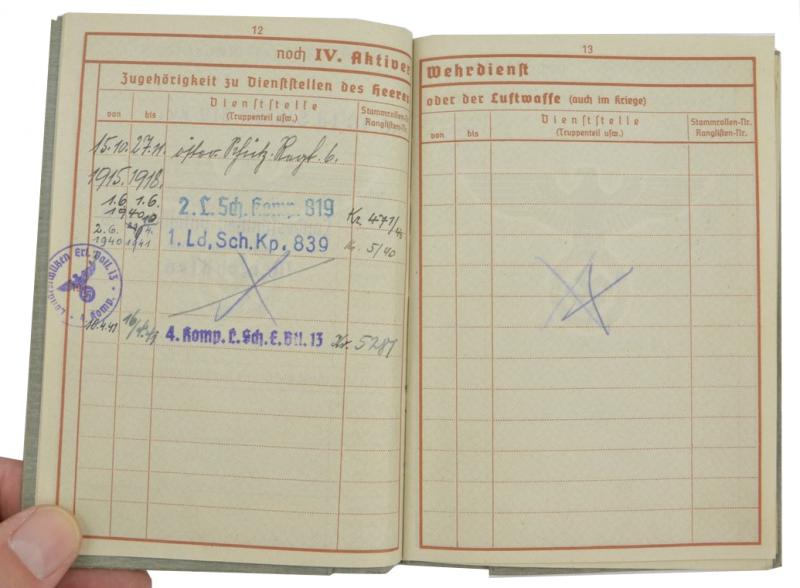 12
noch IV. Aktiver
Zugehörigkeit zu Dienststellen des Heeres
von
bis
Dienststelle
(Truppenteil usw.)
Stammrollen-Nr.
Ranglisten-Nr.
15.10. 27.11.
1915. 1918.
Regt. 6.
1.6. 1.6.
1940
2. L. Sch. Komp. 819
Nr. 471/40
2.6.
1940 1941
1. Ld, Sch. Kp. 839
5/40
Landesschützen Ers. Batl. 13 · 4. Komp.
4. Komp. L. Sch. E. Btl. 13
Nr. 5287
13
Wehrdienst
oder der Luftwaffe (auch im Kriege)
von
bis
Dienststelle
(Truppenteil usw.)
Stammrollen-Nr.
Ranglisten-Nr.